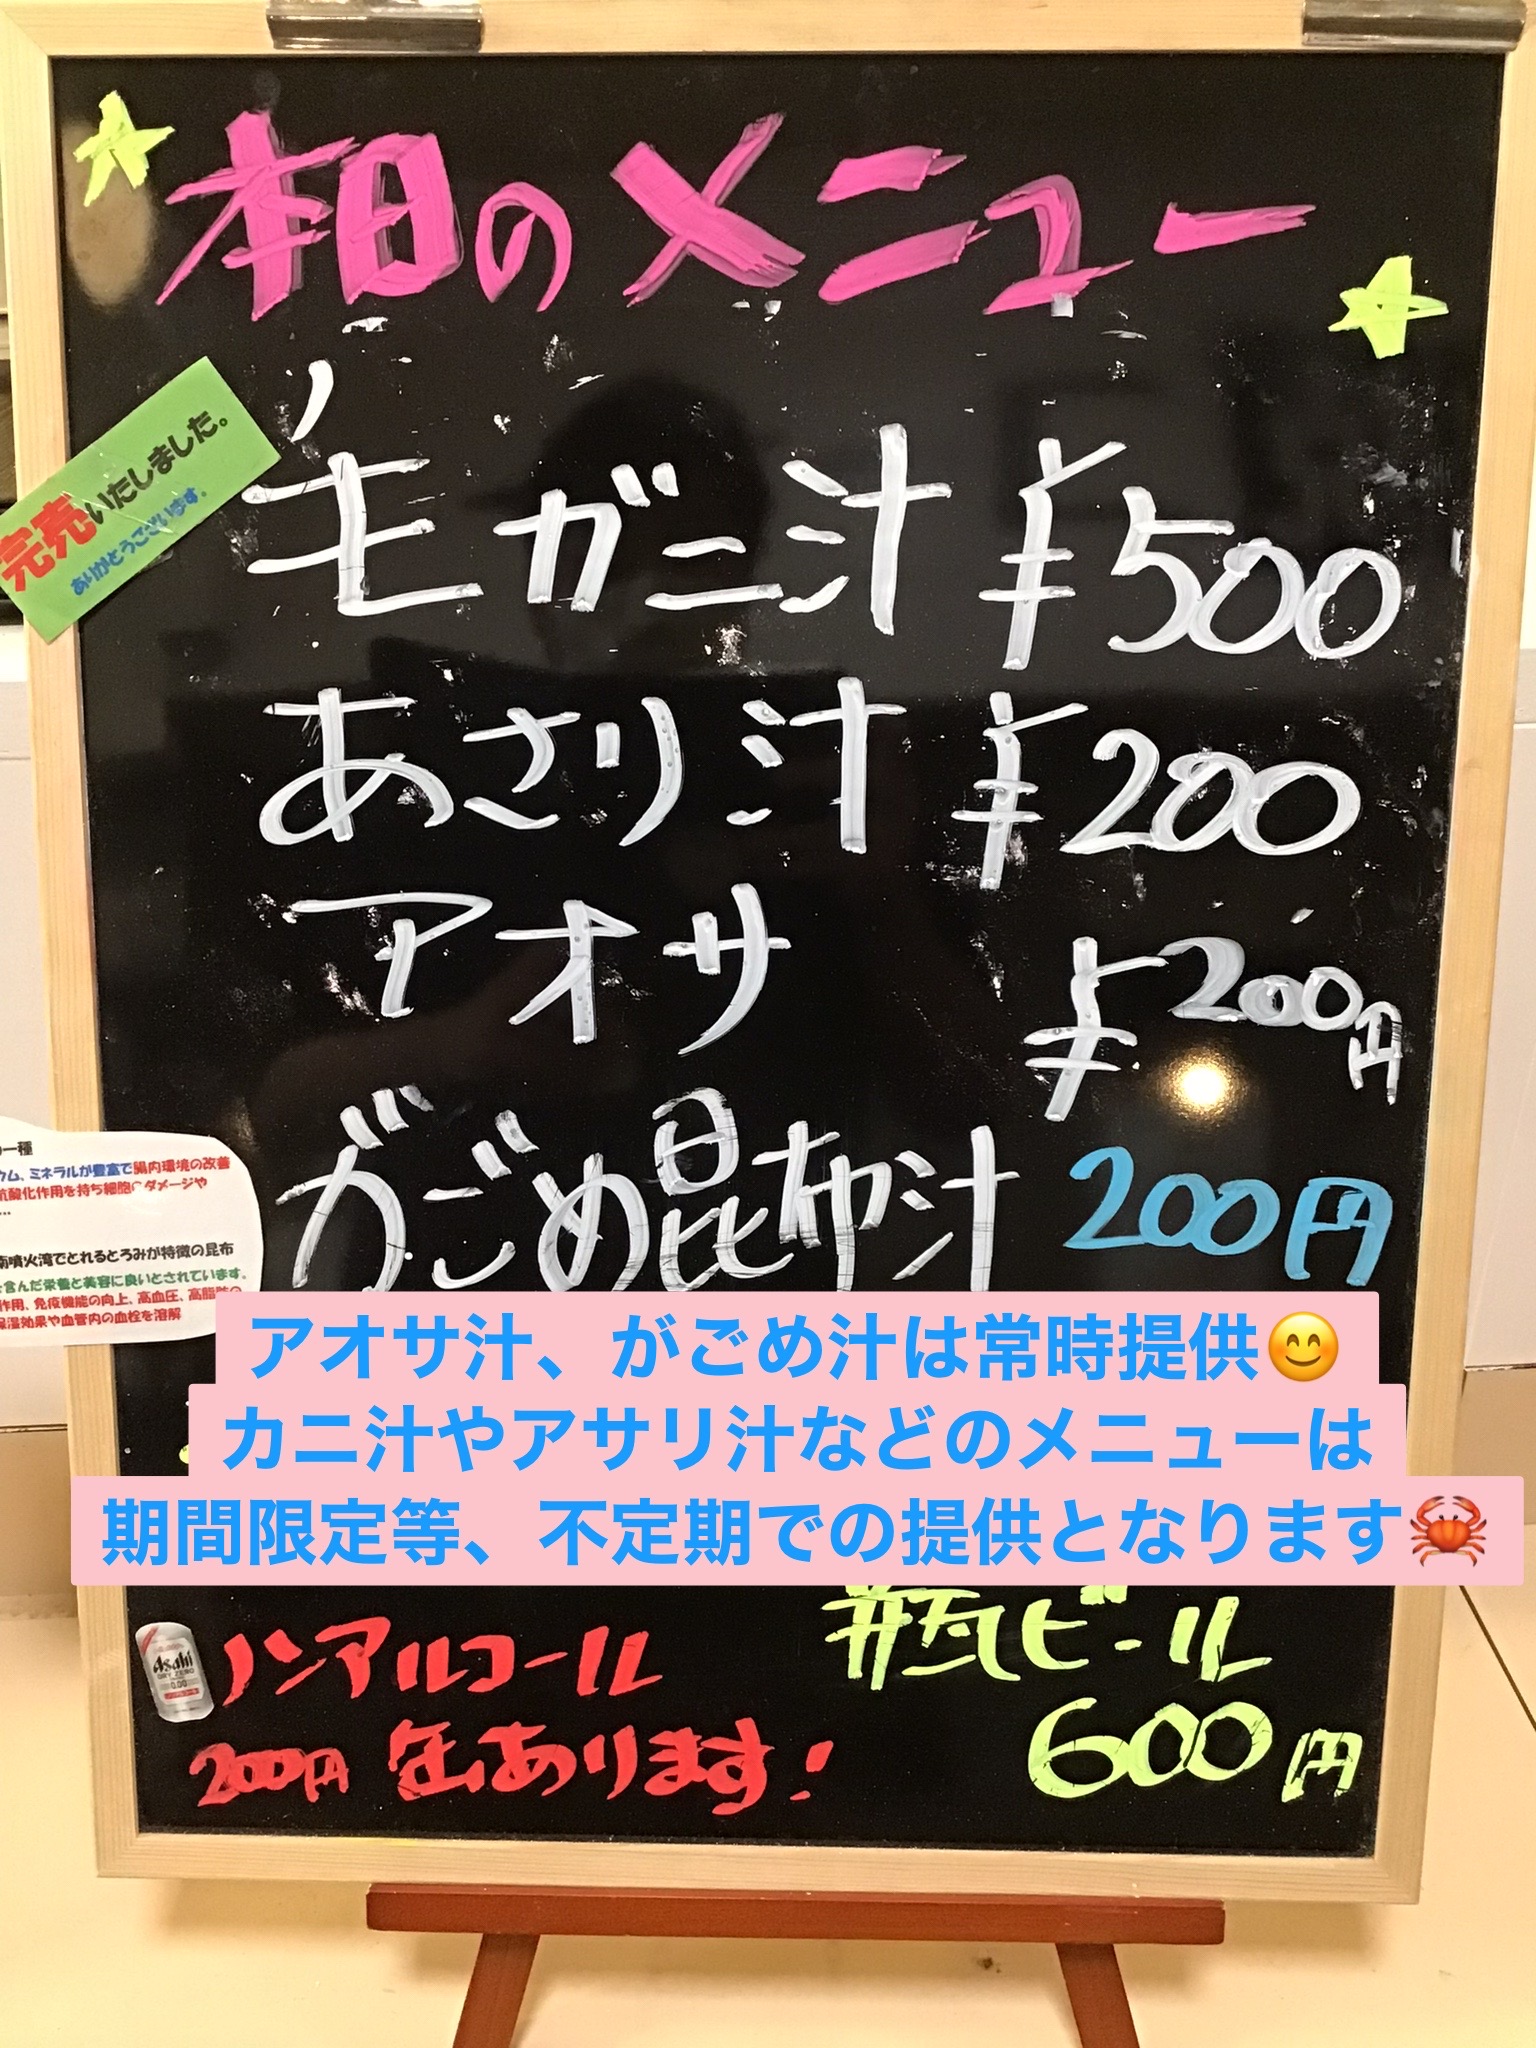 本日のメニュー
完売いたしました。
ありがとうございます。
毛ガニ汁 ¥500
あさり汁 ¥200
アオサ ¥200円
がごめ昆布汁 200円
一種
ウム、ミネラルが豊富で腸内環境の改善
抗酸化作用を持ち細胞 ダメージや
...
南噴火湾でとれるとろみが特徴の昆布
含んだ栄養と美容に良いとされています。
作用、免疫機能の向上、高血圧、高脂
保湿効果や血管内の血栓を溶解
アオサ汁、がごめ汁は常時提供😊
カニ汁やアサリ汁などのメニューは
期間限定等、不定期での提供となります🦀
瓶ビール
600円
Asahi
DRY ZERO
0.00
ノンアルコール
200円 缶あります!